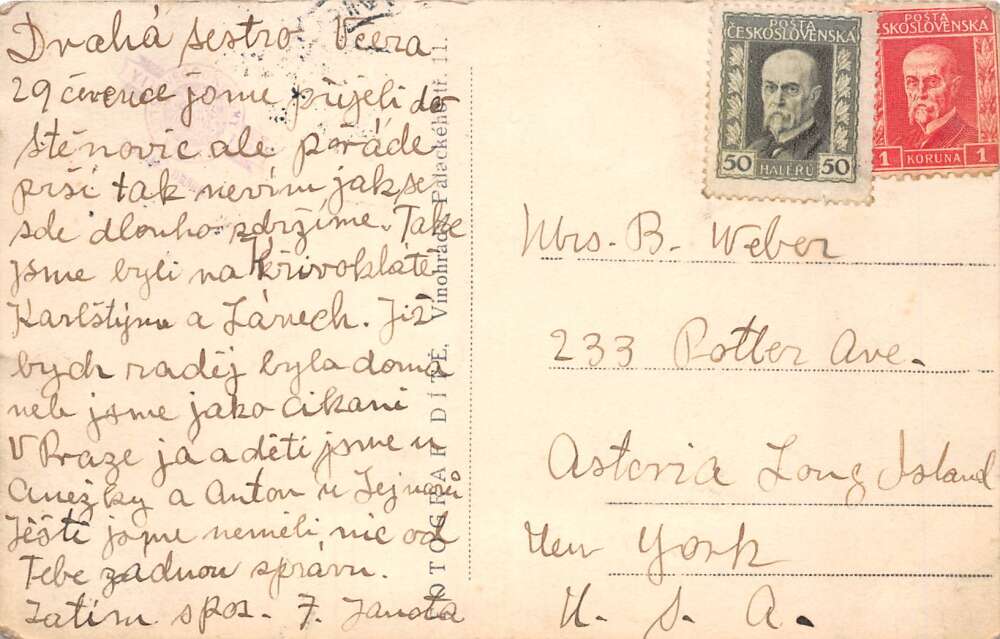 Drahá sestro Včera
29 července jsme přijeli do
Stěnovic ale pořáde
prší tak nevím jak se
sde dlouho zdržíme. Take
jsme byli na Křivoklátě
Karlštýnu a Lánech. Již
bych raděj byla doma
neb jsme jako cikani
V Praze ja a děti jsme u
Anežky a Anton u Lejnarů
Ješti jsme neměli nic od
Tebe žadnou správu.
Zatím spoz. F. Janota
FOTOGRAF DÍTĚ, Vinohrad Palackého tř. 11.
POŠTA
ČESKOSLOVENSKÁ
50 HALÉŘŮ 50
POŠTA
ČESKOSLOVENSKÁ
1 KORUNA 1
Mrs. B. Weber
233 Potter Ave.
Astoria Long Island
New York
U. S. A.